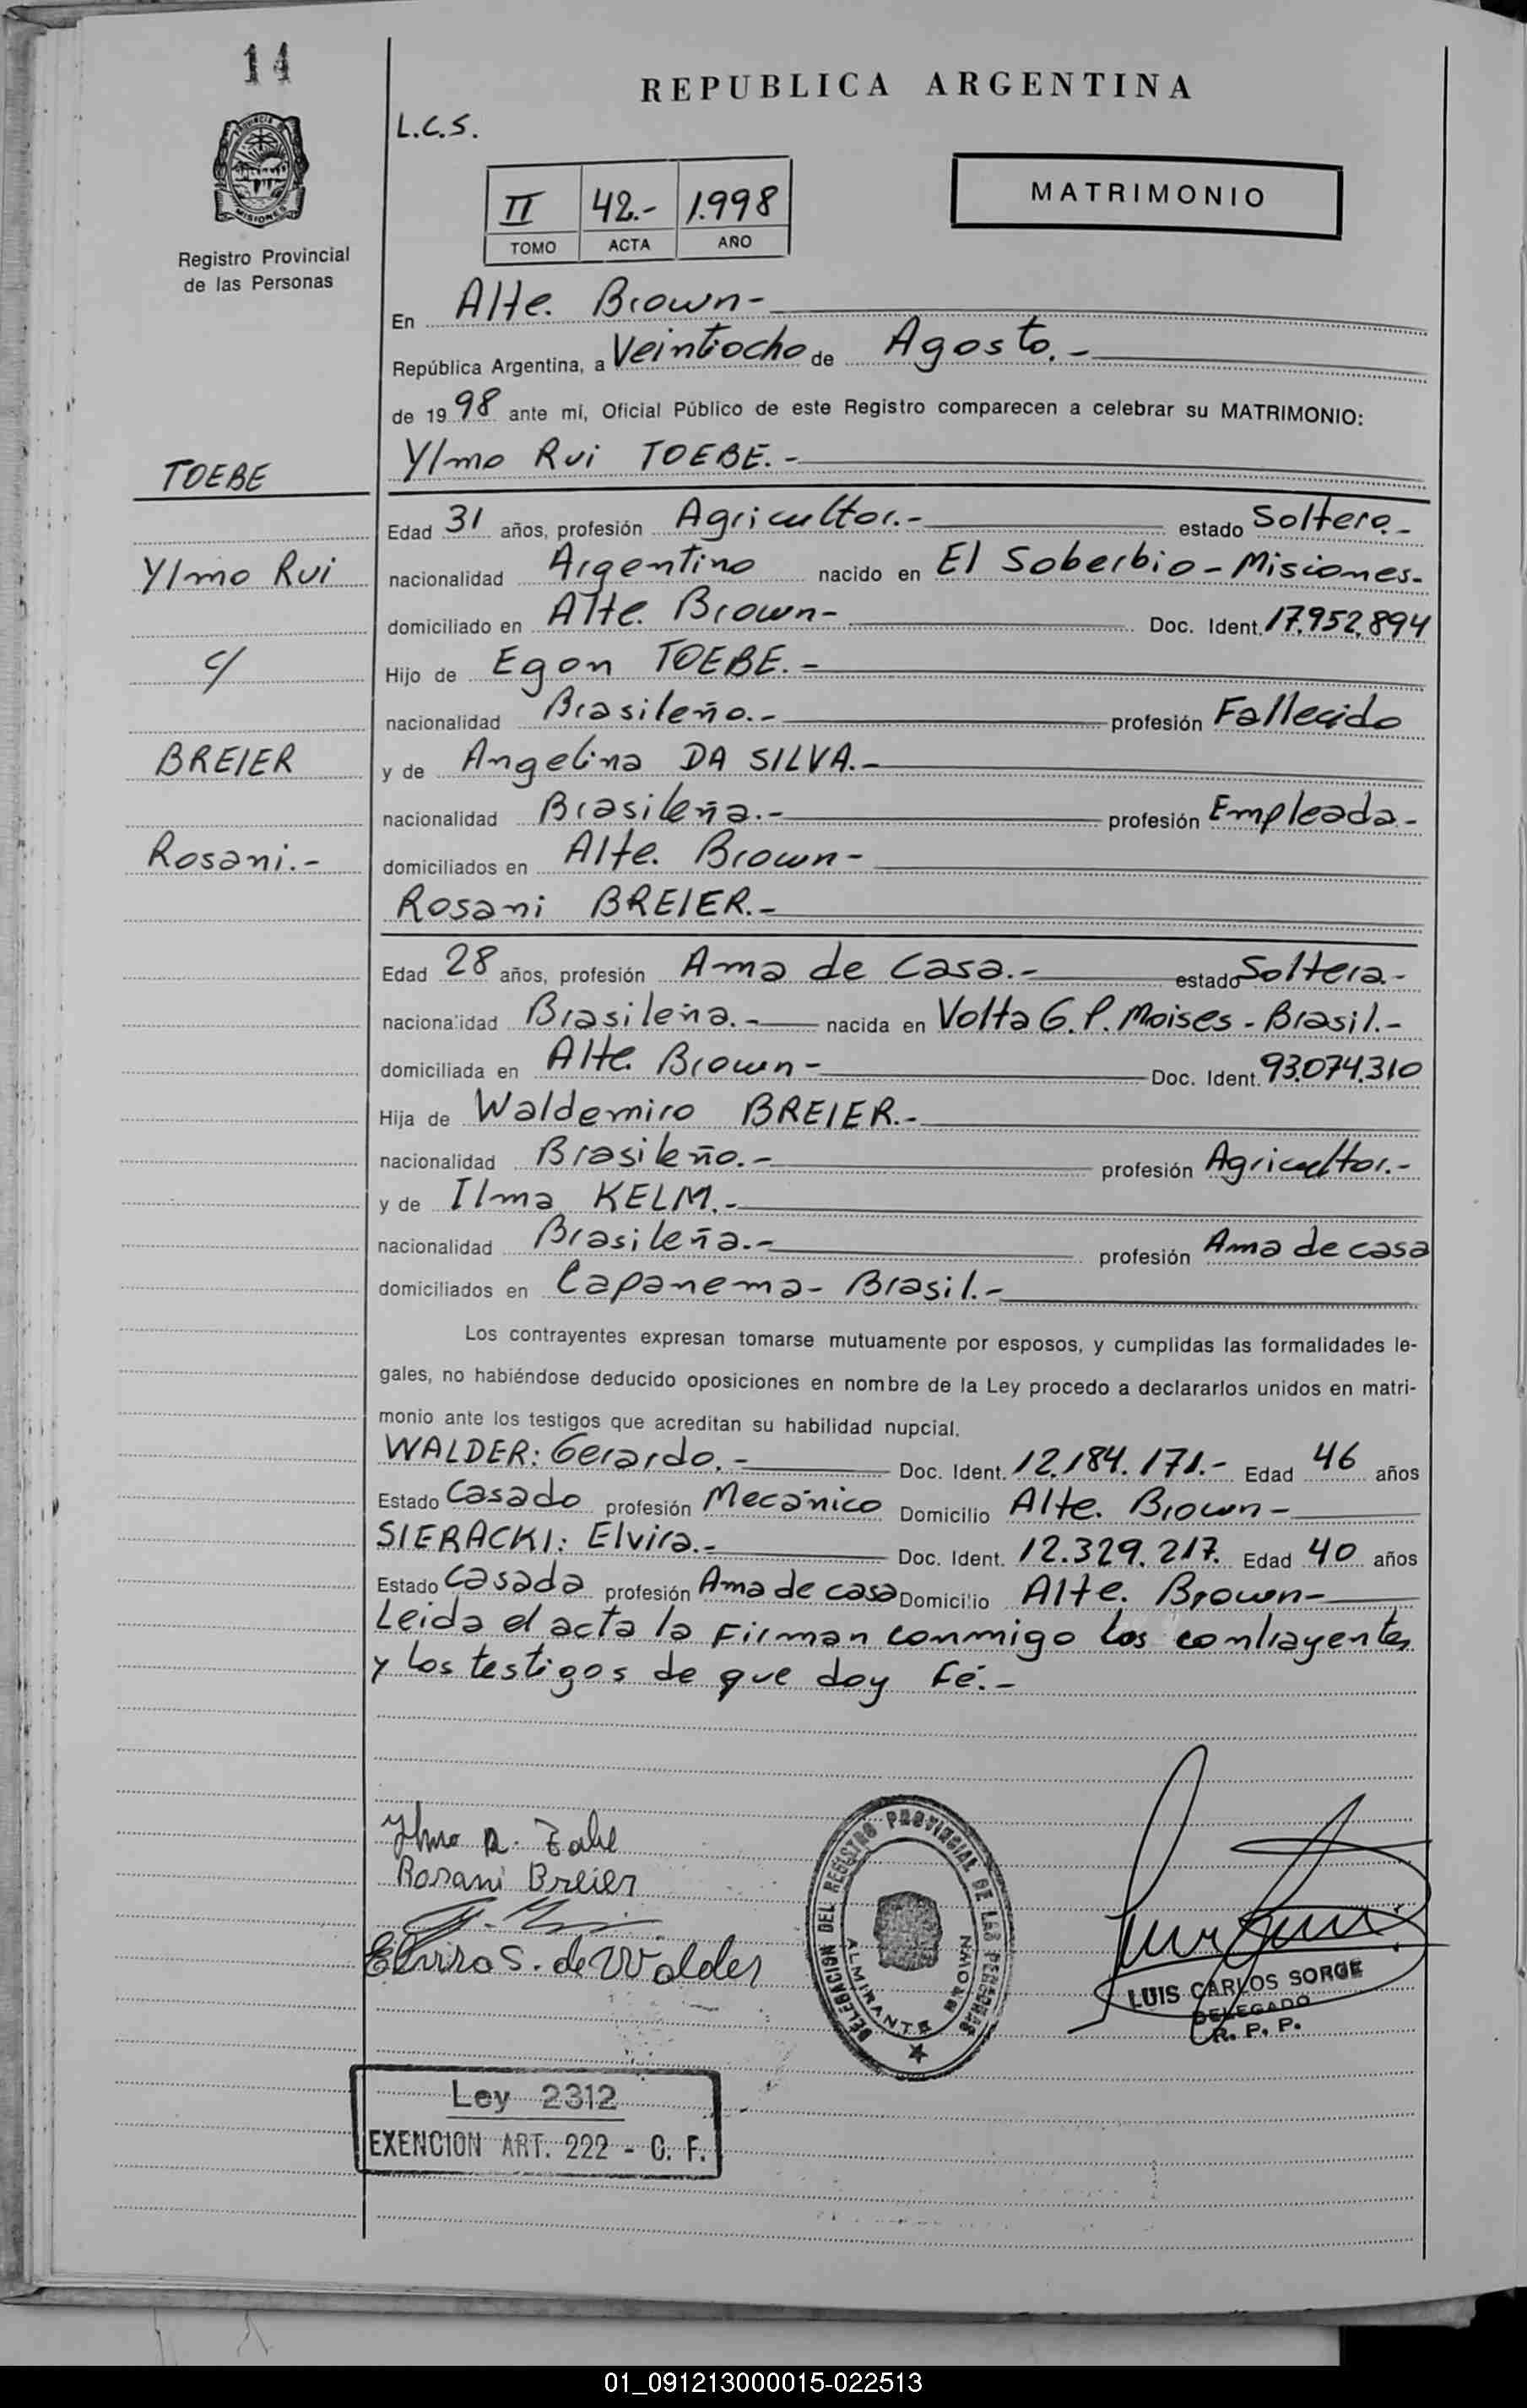 14
REPUBLICA ARGENTINA
L.C.S.
PROVINCIA DE
MISIONES
II 42.- 1.998
TOMO ACTA AÑO
MATRIMONIO
Registro Provincial
de las Personas
En Alte. Brown-
República Argentina, a Veintiocho de Agosto.-
de 1998 ante mí, Oficial Público de este Registro comparecen a celebrar su MATRIMONIO:
TOEBE
Ylmo Rui TOEBE.-
Edad 31 años, profesión Agricultor.- estado Soltero.-
Ylmo Rui
nacionalidad Argentino nacido en El Soberbio-Misiones.-
domiciliado en Alte. Brown- Doc. Ident. 17.952.894
c/
Hijo de Egon TOEBE.-
nacionalidad Brasileño.- profesión Fallecido
BREIER
y de Angelina DA SILVA.-
nacionalidad Brasileña.- profesión Empleada-
Rosani.-
domiciliados en Alte. Brown-
Rosani BREIER.-
Edad 28 años, profesión Ama de Casa.- estado Soltera.-
nacionalidad Brasileña.- nacida en Volta G.P. Moises-Brasil.-
domiciliada en Alte. Brown- Doc. Ident. 93.074.310
Hija de Waldemiro BREIER.-
nacionalidad Brasileño.- profesión Agricultor.-
y de Ilma KELM.-
nacionalidad Brasileña.- profesión Ama de casa
domiciliados en Capanema-Brasil.-
Los contrayentes expresan tomarse mutuamente por esposos, y cumplidas las formalidades le-
gales, no habiéndose deducido oposiciones en nombre de la Ley procedo a declararlos unidos en matri-
monio ante los testigos que acreditan su habilidad nupcial.
WALDER: Gerardo.- Doc. Ident. 12.184.171.- Edad 46 años
Estado Casado profesión Mecánico Domicilio Alte. Brown-
SIERACKI: Elvira.- Doc. Ident. 12.329.217. Edad 40 años
Estado Casada profesión Ama de casa Domicilio Alte. Brown-
Leida el acta la Firman conmigo los contrayentes
y los testigos de que doy Fé.-
Ylmo R. Toebe
Rosani Breier
Elvira S. de Walder
DELEGACION DEL REGISTRO PROVINCIAL DE LAS PERSONAS
ALMIRANTE BROWN
LUIS CARLOS SORGE
DELEGADO
R. P. P.
Ley 2312
EXENCION ART. 222 - C. F.
01_091213000015-022513